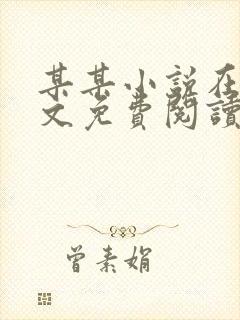 某某小説在
文免費閱讀
曾素娟